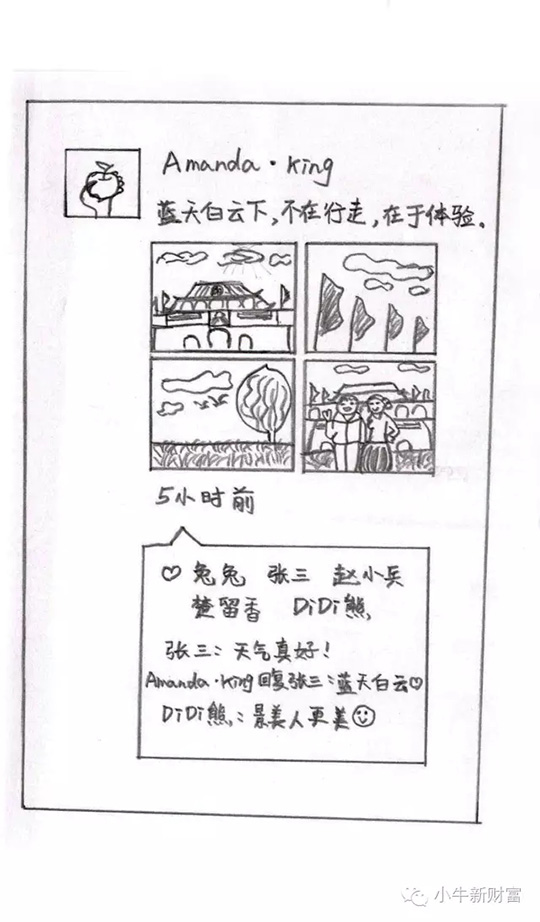 Amanda·King
蓝天白云下，不在行走，在于体验。
5小时前
♡ 兔兔 张三 赵小兵
楚留香 DiDi熊
张三：天气真好！
Amanda·King回复张三：蓝天白云♡
DiDi熊：景美人更美☺
小牛新财富